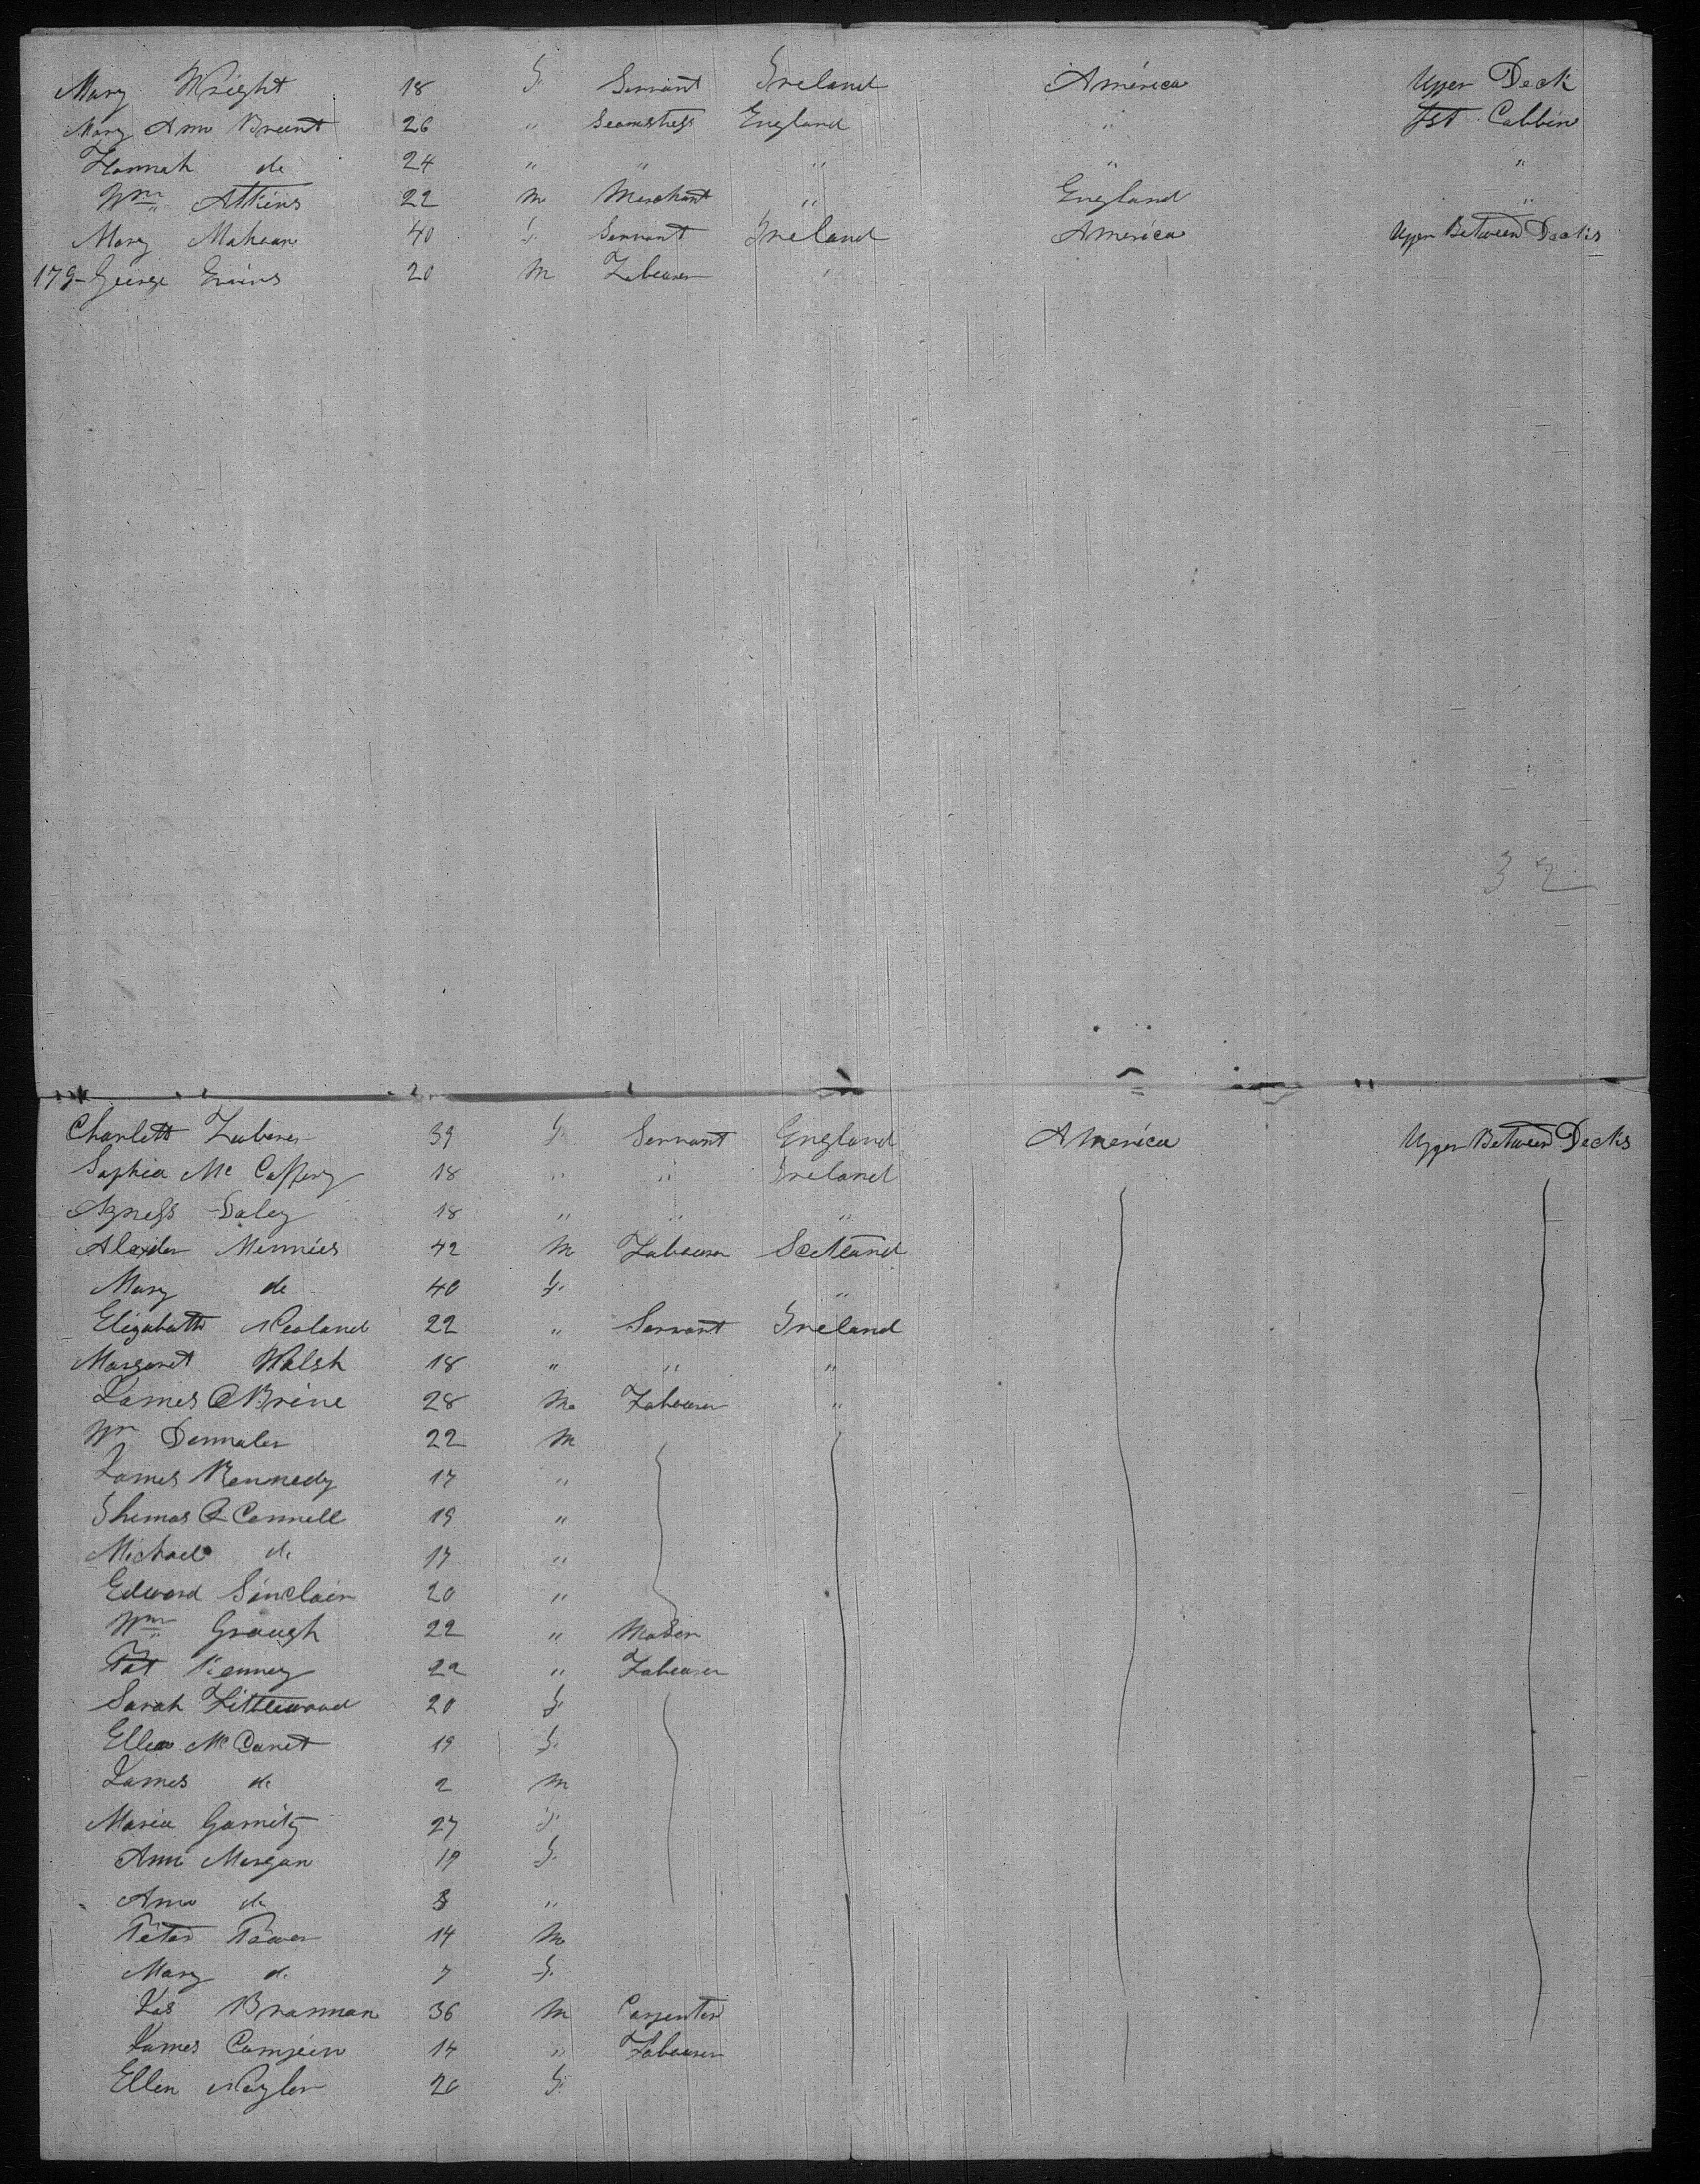 Mary Wright 18 F. Servant Ireland America Upper Deck
Mary Ann Brunt 26 " Seamstress England " 1st Cabbin
Hannah do 24 " " " " "
Wm Atkins 22 M Merchant " England "
Mary Mahoan 40 F. Servant Ireland America Upper Between Decks
179 - George Evins 20 M Labourer
32
Charlett 39 F. Servant England America Upper Between Decks
Sophia Mc Caffery 18 " " Ireland
Agness Daley 18 " " "
Alexder Mennies 42 M Labourer Scotland
Mary do 40 F. "
Elizabeth Nealand 22 " Servant Ireland
Margaret Walsh 18 " " "
James O Brine 28 M Labourer "
Wm 22 M
James Kennedy 17 "
Thomas O Connell 19 "
Michael do 17 "
Edward Sinclair 20 "
Wm Grough 22 " Mason
Pat Kenney 22 " Labourer
Sarah Littlewood 20 F
Ellen Mc 19 F.
James do 2 M
Maria 27 F
Ann Morgan 19 F.
Ann do 3 "
Peter Power 14 M
Mary do 7 F.
Jas Brannan 36 M Carpenter
James 14 " Labourer
Ellen Naylor 20 F.